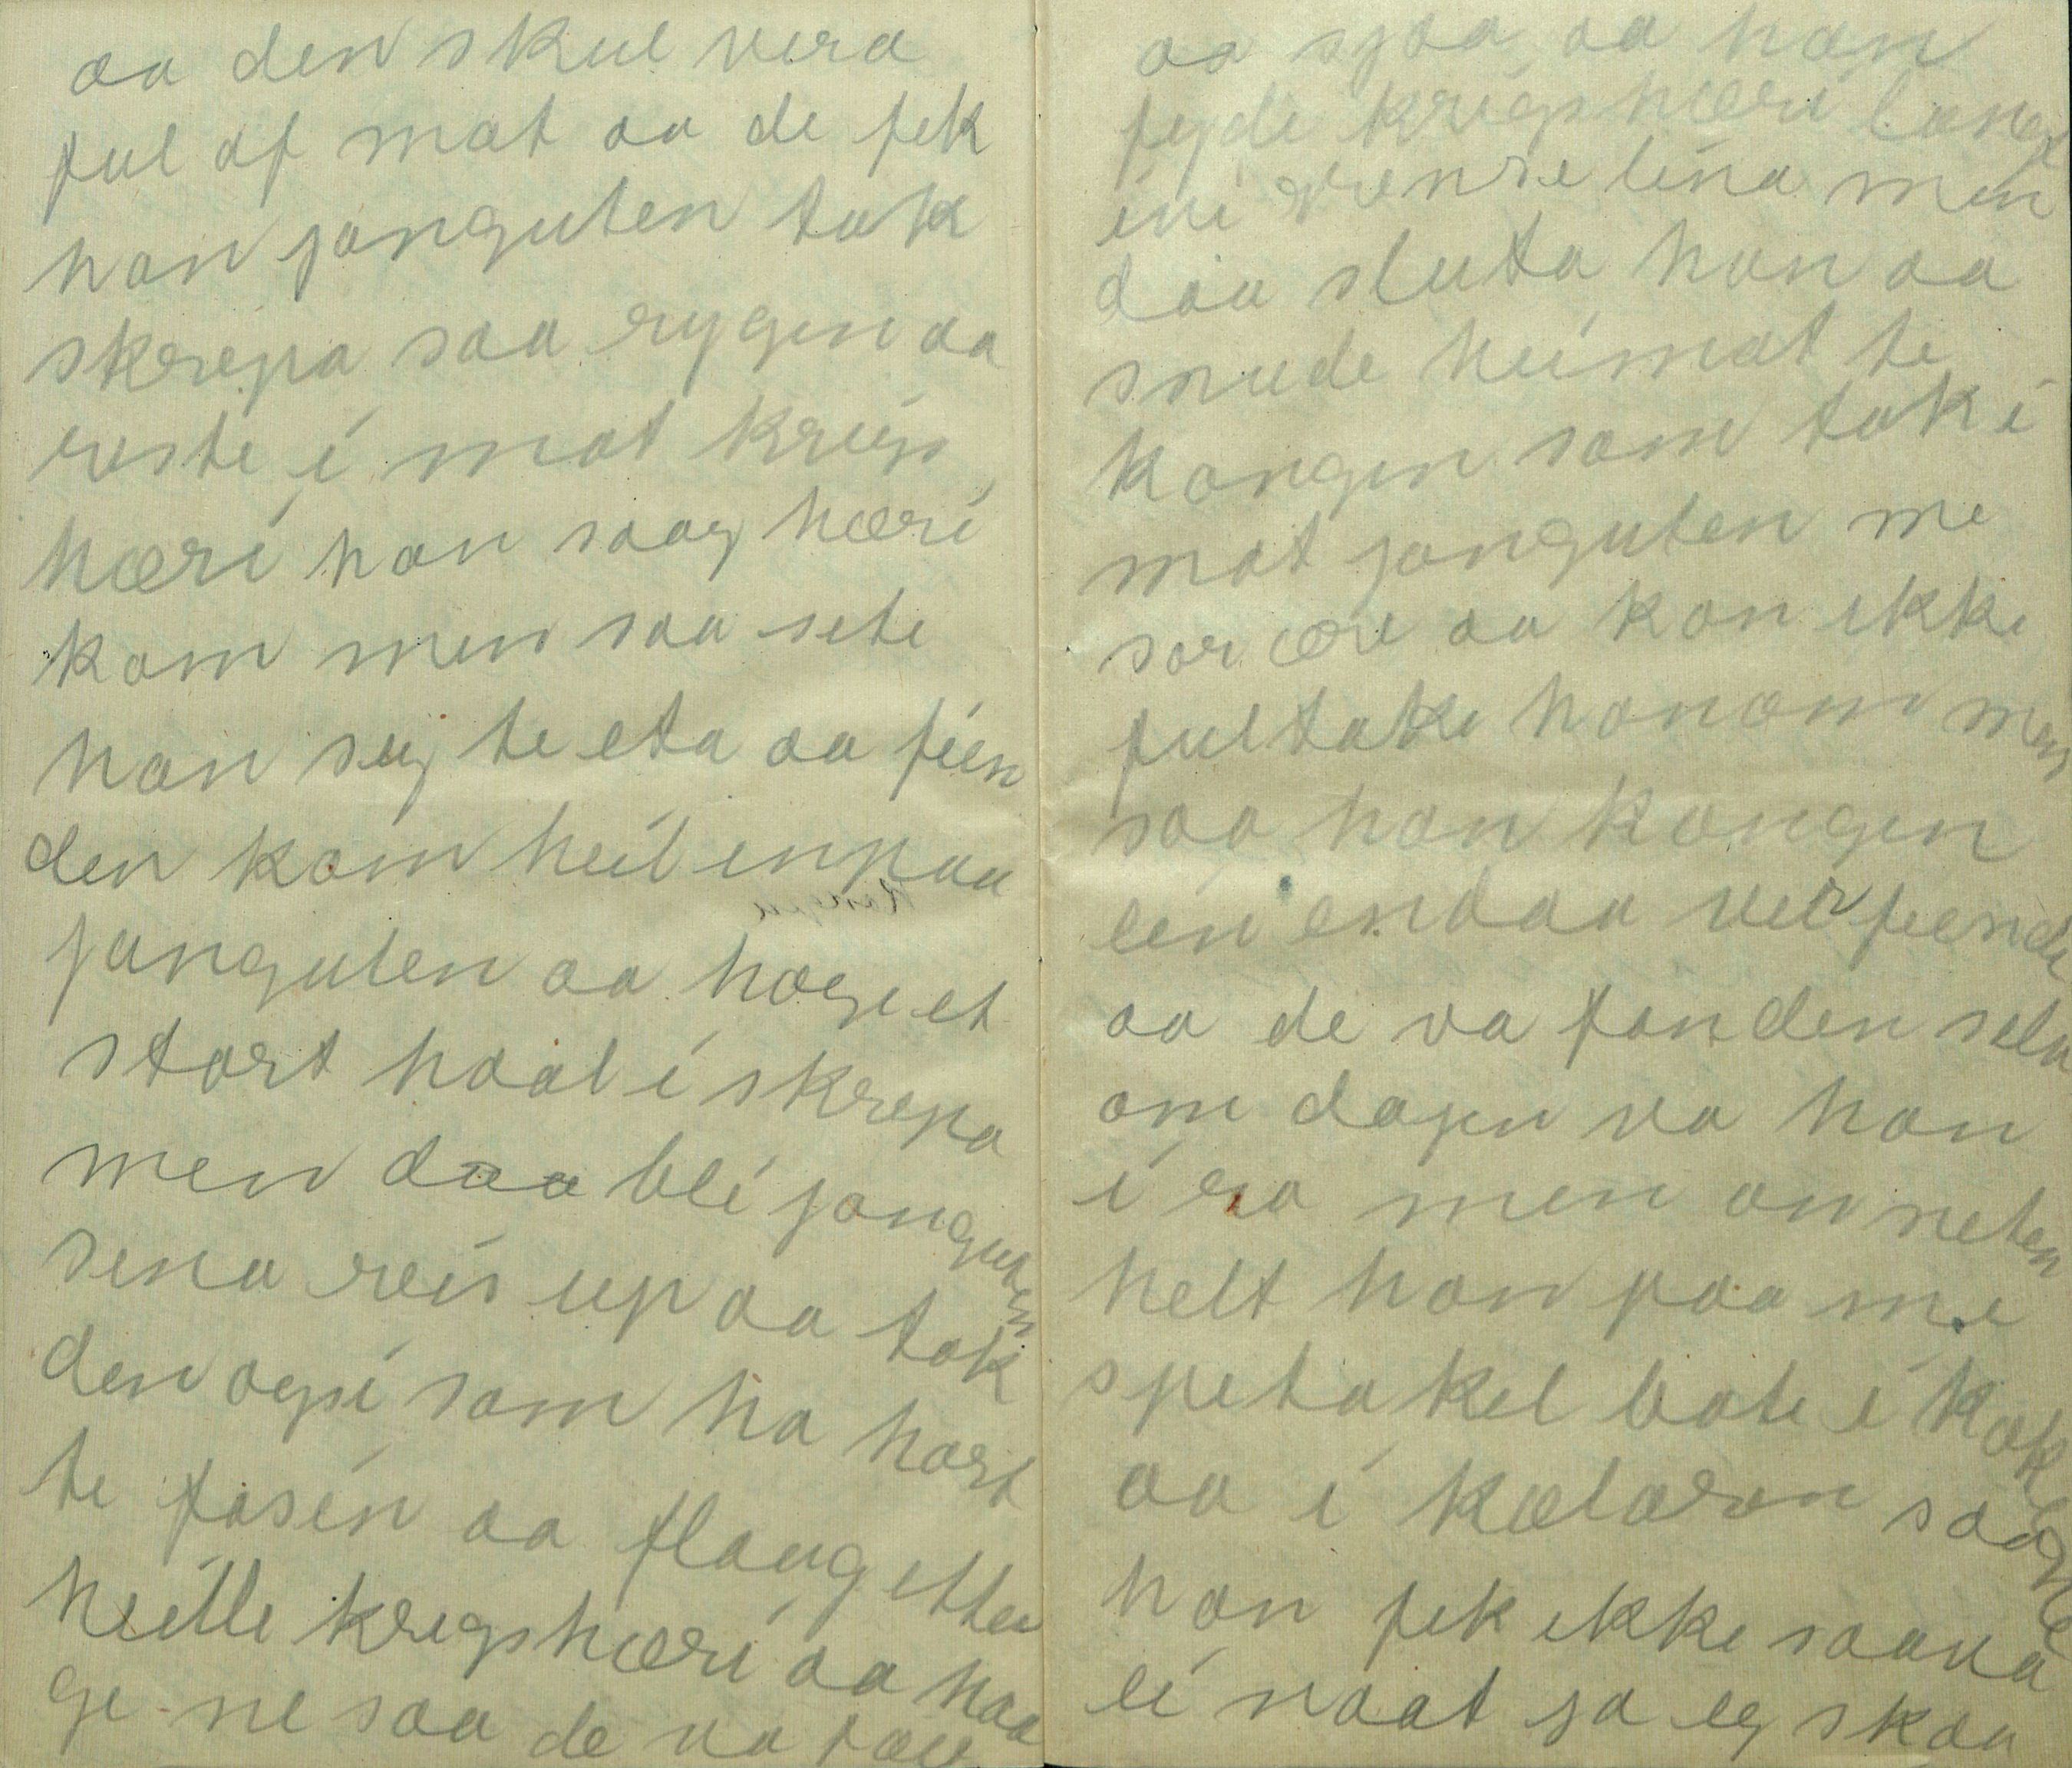 aa den skul vera
ful af mat aa de fek
han janguten tok
skrepa saa rygen aa
reste i mat krigs
hæri han saag hæri
kom men saa sete
han seg te eta aa fien
den kom heil inpaa
janguten aa hoge et
stort haal i skrepa
men daa blei janguten
sena reis up aa tok
den ogsi som ha hört
te fosen aa flaug etter
heille krigshæri aa haa
ge ne saa de va
aa sjaa aa han
fejde krigshæri langt
ivi grense lina men
daa sluta han aa
snude heimat te
kongen som tok i
mot janguten me
sor ære aa kan ikke
fultakke honom men
saa han kongen
ein endaa ver fiende
aa de va fanden selv
om dagen va han
i ro men om neten
helt han paa me
spetakel bote i kokene
aa i kælaren saa
han fek ikke saava
ei naat ja eg skaa